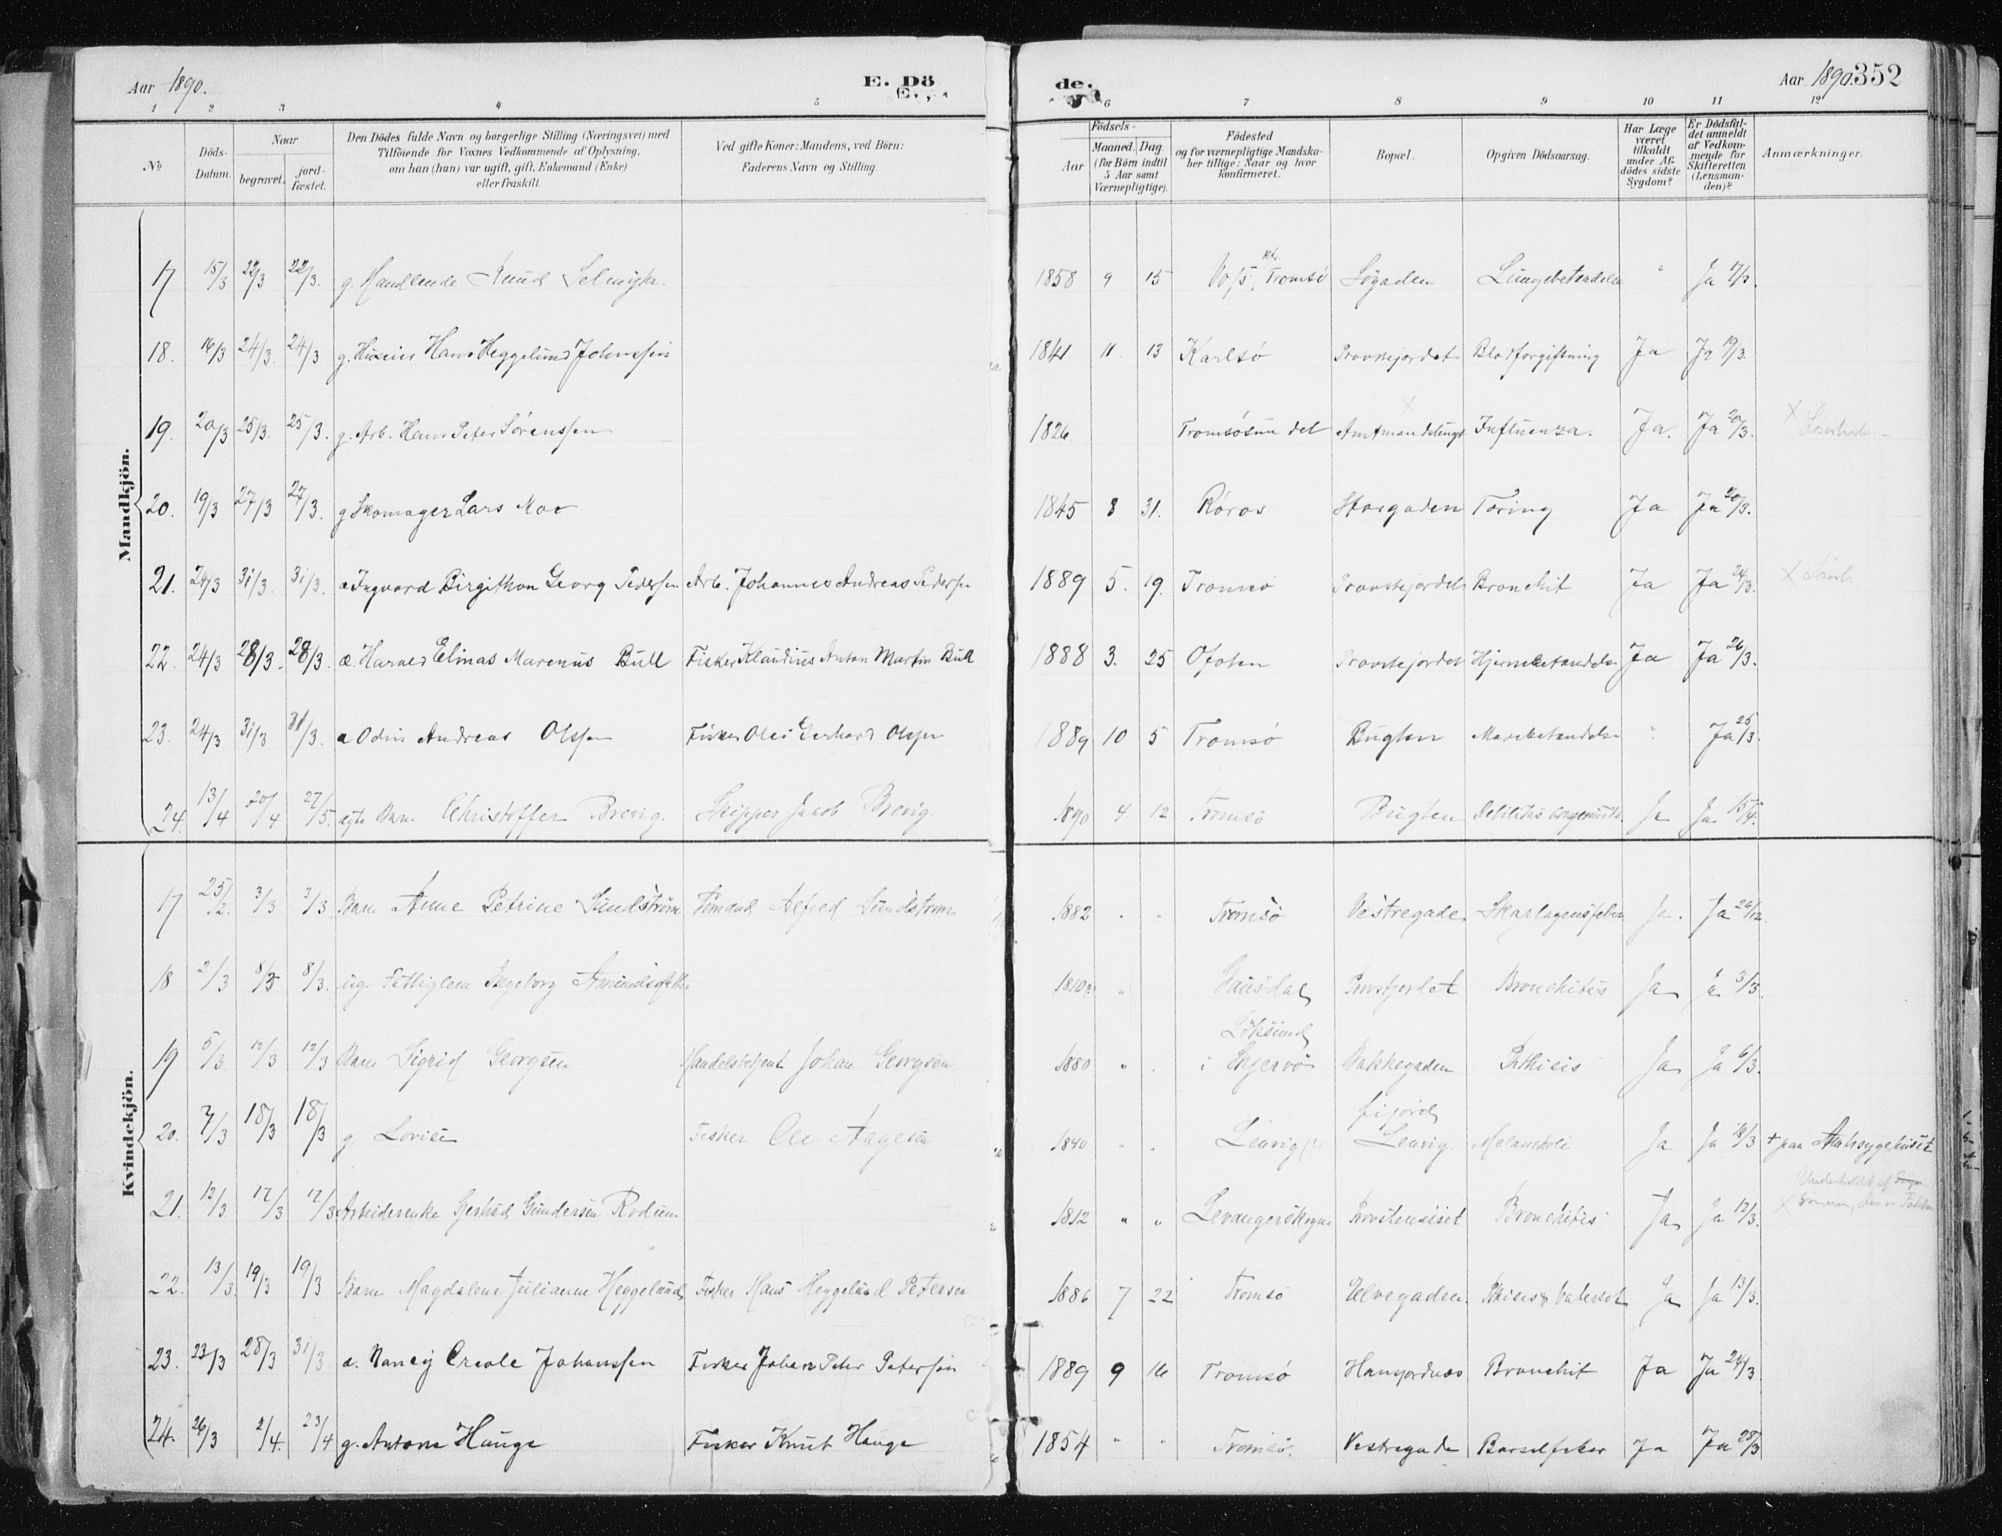 Aar 1890.
E. Dö
de.
Aar 1890. 352
1 2 3 4 5 6 7 8 9 10 11 12
No
Döds-Datum.
Naar
begravet.
jord-fæstet.
Den Dödes fulde Navn og borgerlige Stilling (Næringsvei) med
Tilföiende for Voxnes Vedkommende af Oplysning,
om han (hun) var ugift, gift, Enkemand (Enke)
eller fraskilt.
Ved gifte Koner: Mandens, ved Börn:
Faderens Navn og Stilling
Födsels-
Aar
Maaned. Dag.
(for Börn indtil
5 Aar samt
Værnepligtige).
Födested
og for værnepligtige Mandska-
ber tillige: Naar og hvor
konfirmeret.
Bopæl.
Opgiven Dödsaarsag.
Har Læge
været
tilkaldt
under Af-
dödes sidste
Sygdom?
Er Dödsfal-
det anmeldt
af Vedkom-
mende for
Skifteretten
(Lensman-
den)?
Anmærkninger.
Mandkjön.
17 15/3 22/3 22/3. g. Handlende Knud 1858 9 15 Voss, Tromsø Søgaden Lungebetændelse " Ja
18. 16/3 24/3. 24/3 g. Huseier Hans Heggelund Johnssen 1841 11. 13 Karlsø Provstejordet Blodforgiftning Ja Ja 19/3.
19. 20/3 25/3. 25/3. g. Arb. Hans Peter Sørenssen 1826 Tromsøsundet Influenza. Ja. Ja 20/3.
20. 19/3 27/3 27/3. g. Skomager Lars Moo 1845 8 31. Røros Storgaden Tæring Ja Ja 20/3.
21. 24/3 31/3. 31/3. æ Ingvard Birgithon Georg Pedersen Arb. Johannes Andreas Pedersen 1889 5. 19. Tromsø Provstejordet Bronchit Ja Ja 24/3.
22. 24/3 28/3. 28/3. æ. Harald Elinas Marenus Bull Fisker Klaudius Anton Martin Bull 1888 3. 25 Ofoten Provstejordet Hjernebetændelse Ja Ja 26/3.
23. 24/3 31/3 31/3. æ Odin Andreas Olssen Fisker Gerhard Olssen 1889 10 5 Tromsø Bugten Mavebetændelse " Ja 25/3.
24. 13/4 20/4 27/5. ægte Barn Christoffer Brevig. Skipper Jacob Brevig. 1890 4. 12 Tromsø Bugten Debilitas congenita Ja Ja 15/4.
Kvindekjön.
17 25/2. 3/3 3/3 Barn Anne Petrine Sundström Sømand Alfred Sundstrøm 1882 " " Tromsø Vestregade Skarlagensfeber Ja. Ja
18 2/3 8/3 8/3. ug. Fattiglem Ingeborg 1810 " Gausdal Provstjordet Bronchitis Ja Ja 3/3.
19 5/3. 12/3 12/3 Barn Sigrid Georgsen Handelsbetjent Johan Georgsen 1880 " " i Skjervø Bakkegaden Phthisis Ja Ja 6/3.
20. 7/3 18/3 18/3 g. Lovise Fisker Ole Aagesen 1840 " " Lenvig Lenvig. Melancholi Ja Ja + paa Amtssygehuset
21. 12/3 17/3 17/3 Arbiderenke Gjertrud Gundersen Rodum 1812 " " Levangerskogne Bronchitis Ja Ja 12/3.
22. 13/3. 19/3 19/3 Barn Magdalene Julianne Heggelund Fisker Hans Heggelund Petersen 1886 7 22 Tromsø Elvegaden Ja Ja 13/3.
23. 23/3 28/3 31/3. æ. Nancy Creole Johanssen Fisker Johan Peter Peterssen 1889 9 16 Tromsø Hansjordnæs Bronchit Ja Ja 24/3
24. 26/3 2/4. 23/4 g. Antone Hauge Fisker Knut Hauge 1854 " " Tromsø. Vestregade Barselfeber Ja Ja 28/3